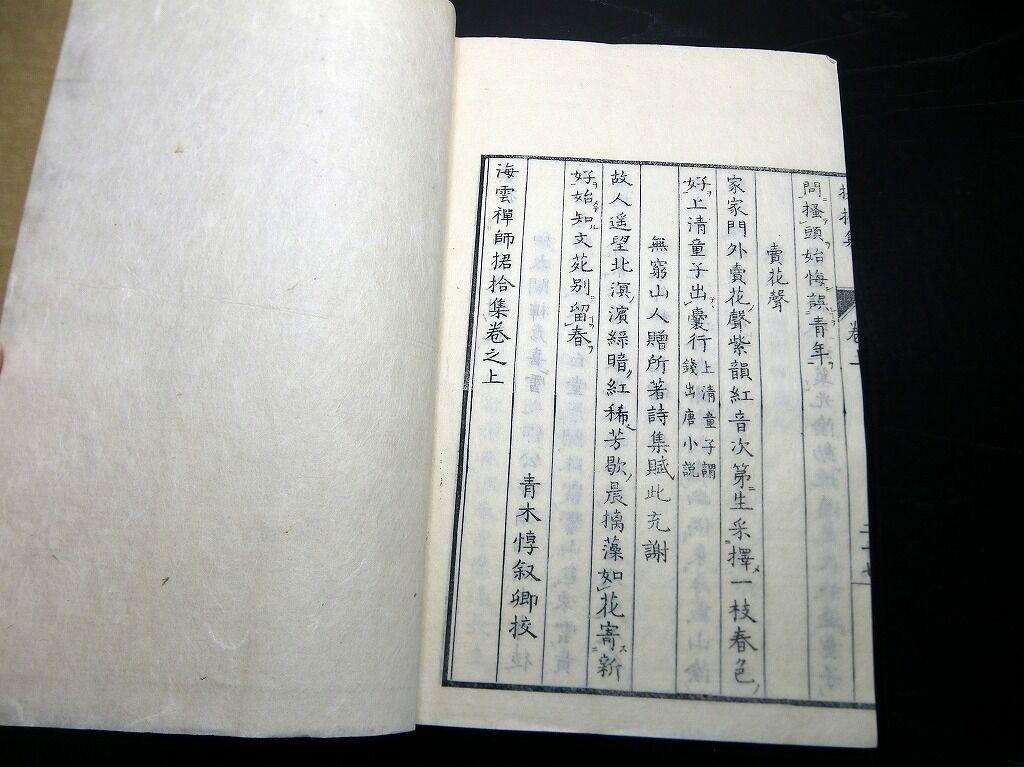 問搔頭始悔誤青年
賣花聲
家家門外賣花聲紫韻紅音次第生采擇一枝春色
好上清童子出囊行上清童子謂
錢出唐小說
無窮山人贈所著詩集賦此充謝
故人遥望北溟濱綠暗紅稀芳歇晨摛藻如花寄新
好始知文苑別留春
青木惇叙卿挍
海雲禪師捃拾集卷之上